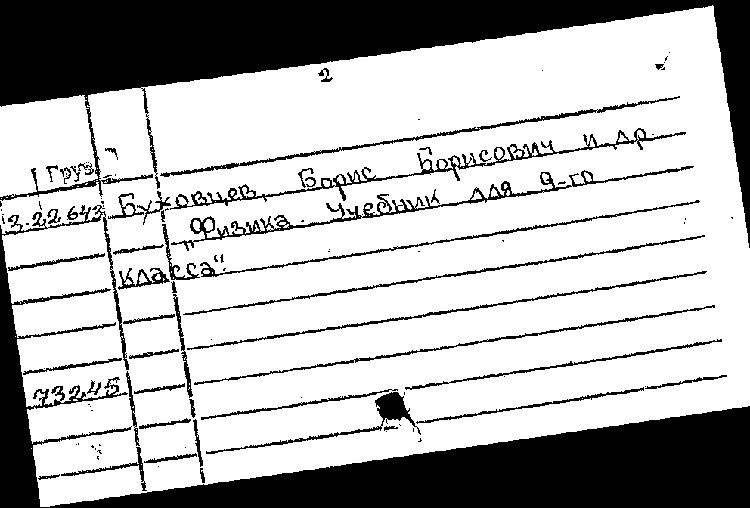 2
Груз.
2.22643 Буховцев, Борис Борисович и др.
„Физика. Учебник для 9-го
класса“.
73245